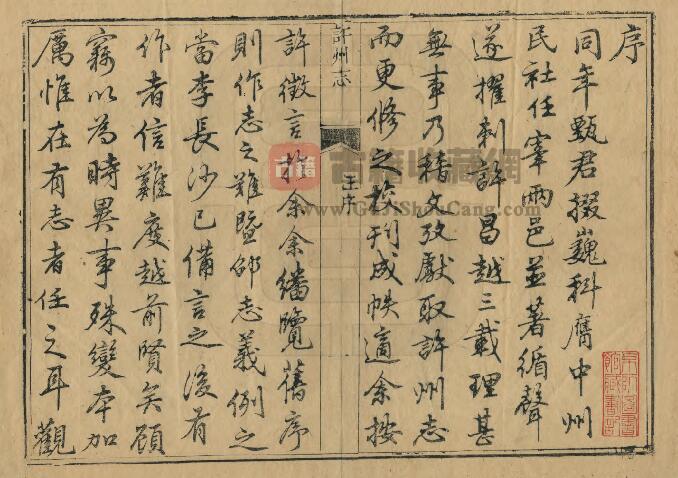 序
同年甄君掇巍科膺中州
民社任宰兩邑並著循聲
遂擢刺許昌越三載理甚
無事乃稽文攷獻取許州志
而更修之役刊成帙適余按
許州志
王序
許徵言於余余繙覽舊序
則作志之難暨郃志義例之
當李長沙已備言之後有
作者信難度越前賢矣顧
竊以為時異事殊變本加
厲惟在有志者任之耳觀
古籍收藏網
www.GuJiShouCang.com
古籍